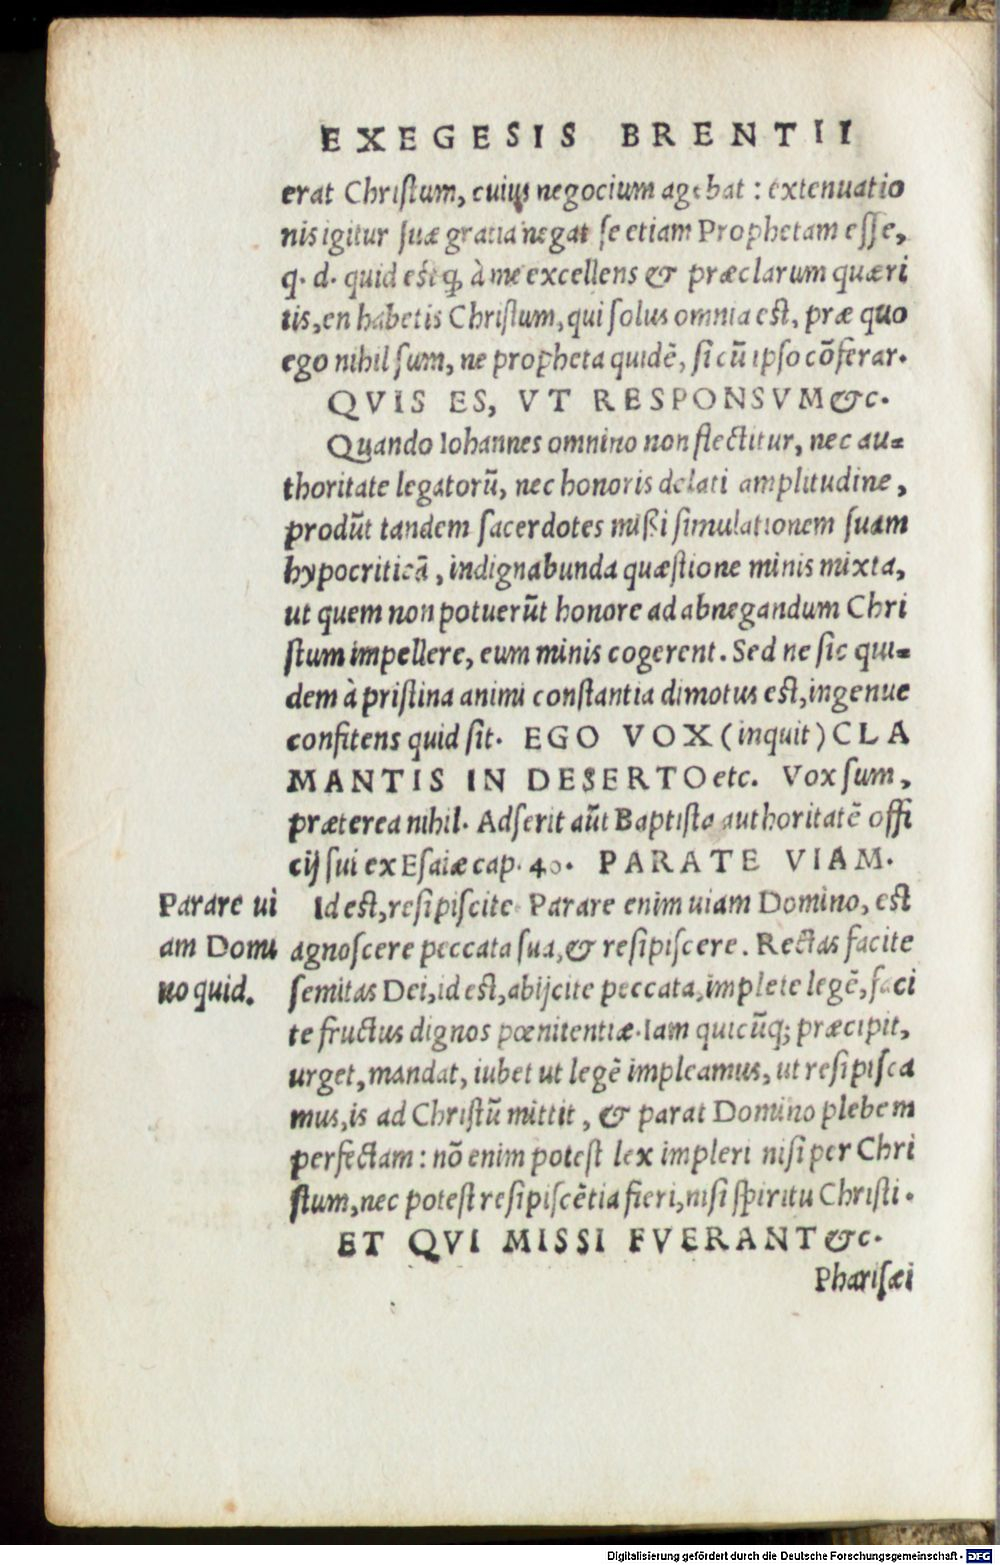 EXEGESIS BRENTII
erat Christum, cuius negocium agebat : extenuatio
nis igitur suæ gratia negat se etiam Prophetam esse,
q. d. quid est qꝫ à me excellens & præclarum quæri
tis, en habetis Christum, qui solus omnia est, præ quo
ego nihil sum, ne propheta quidẽ, si cũ ipso cõferar.
QVIS ES, VT RESPONSVM &c.
Quando Iohannes omnino non flectitur, nec au=
thoritate legatorũ, nec honoris delati amplitudine,
prodũt tandem sacerdotes missi simulationem suam
hypocriticã, indignabunda quæstione minis mixta,
ut quem non potuerũt honore ad abnegandum Chri
stum impellere, eum minis cogerent. Sed ne sic qui=
dem à pristina animi constantia dimotus est, ingenue
confitens quid sit. EGO VOX (inquit) CLA
MANTIS IN DESERTO etc. Vox sum,
præterea nihil. Adserit aũt Baptista authoritatẽ offi
cij sui ex Esaiæ cap. 40. PARATE VIAM.
Parare ui
am Domi
no quid.
Id est, resipiscite. Parare enim uiam Domino, est
agnoscere peccata sua, & resipiscere. Rectas facite
semitas Dei, id est, abijcite peccata, implete legẽ, faci
te fructus dignos pœnitentiæ. Iam quicũqꝫ præcipit,
urget, mandat, iubet ut legẽ impleamus, ut resipisca
mus, is ad Christũ mittit, & parat Domino plebem
perfectam : nõ enim potest lex impleri nisi per Chri
stum, nec potest resipiscẽtia fieri, nisi spiritu Christi.
ET QVI MISSI FVERANT &c.
Pharisæi
Digitalisierung gefördert durch die Deutsche Forschungsgemeinschaft - DFG